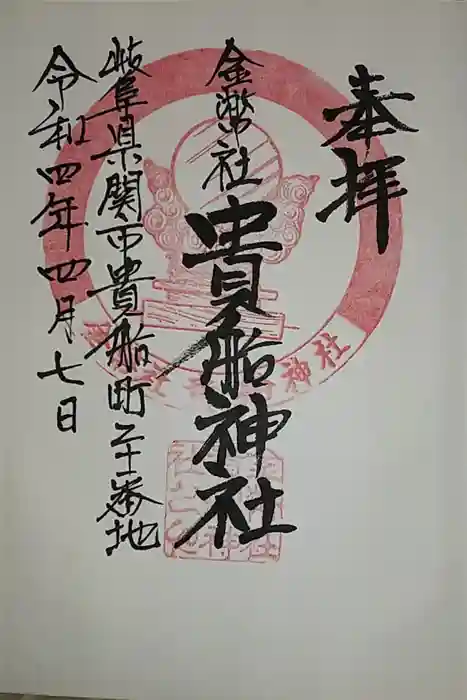 奉拝
金幣社
貴船神社
岐阜県関市貴船町二十一番地
令和四年四月七日
神社